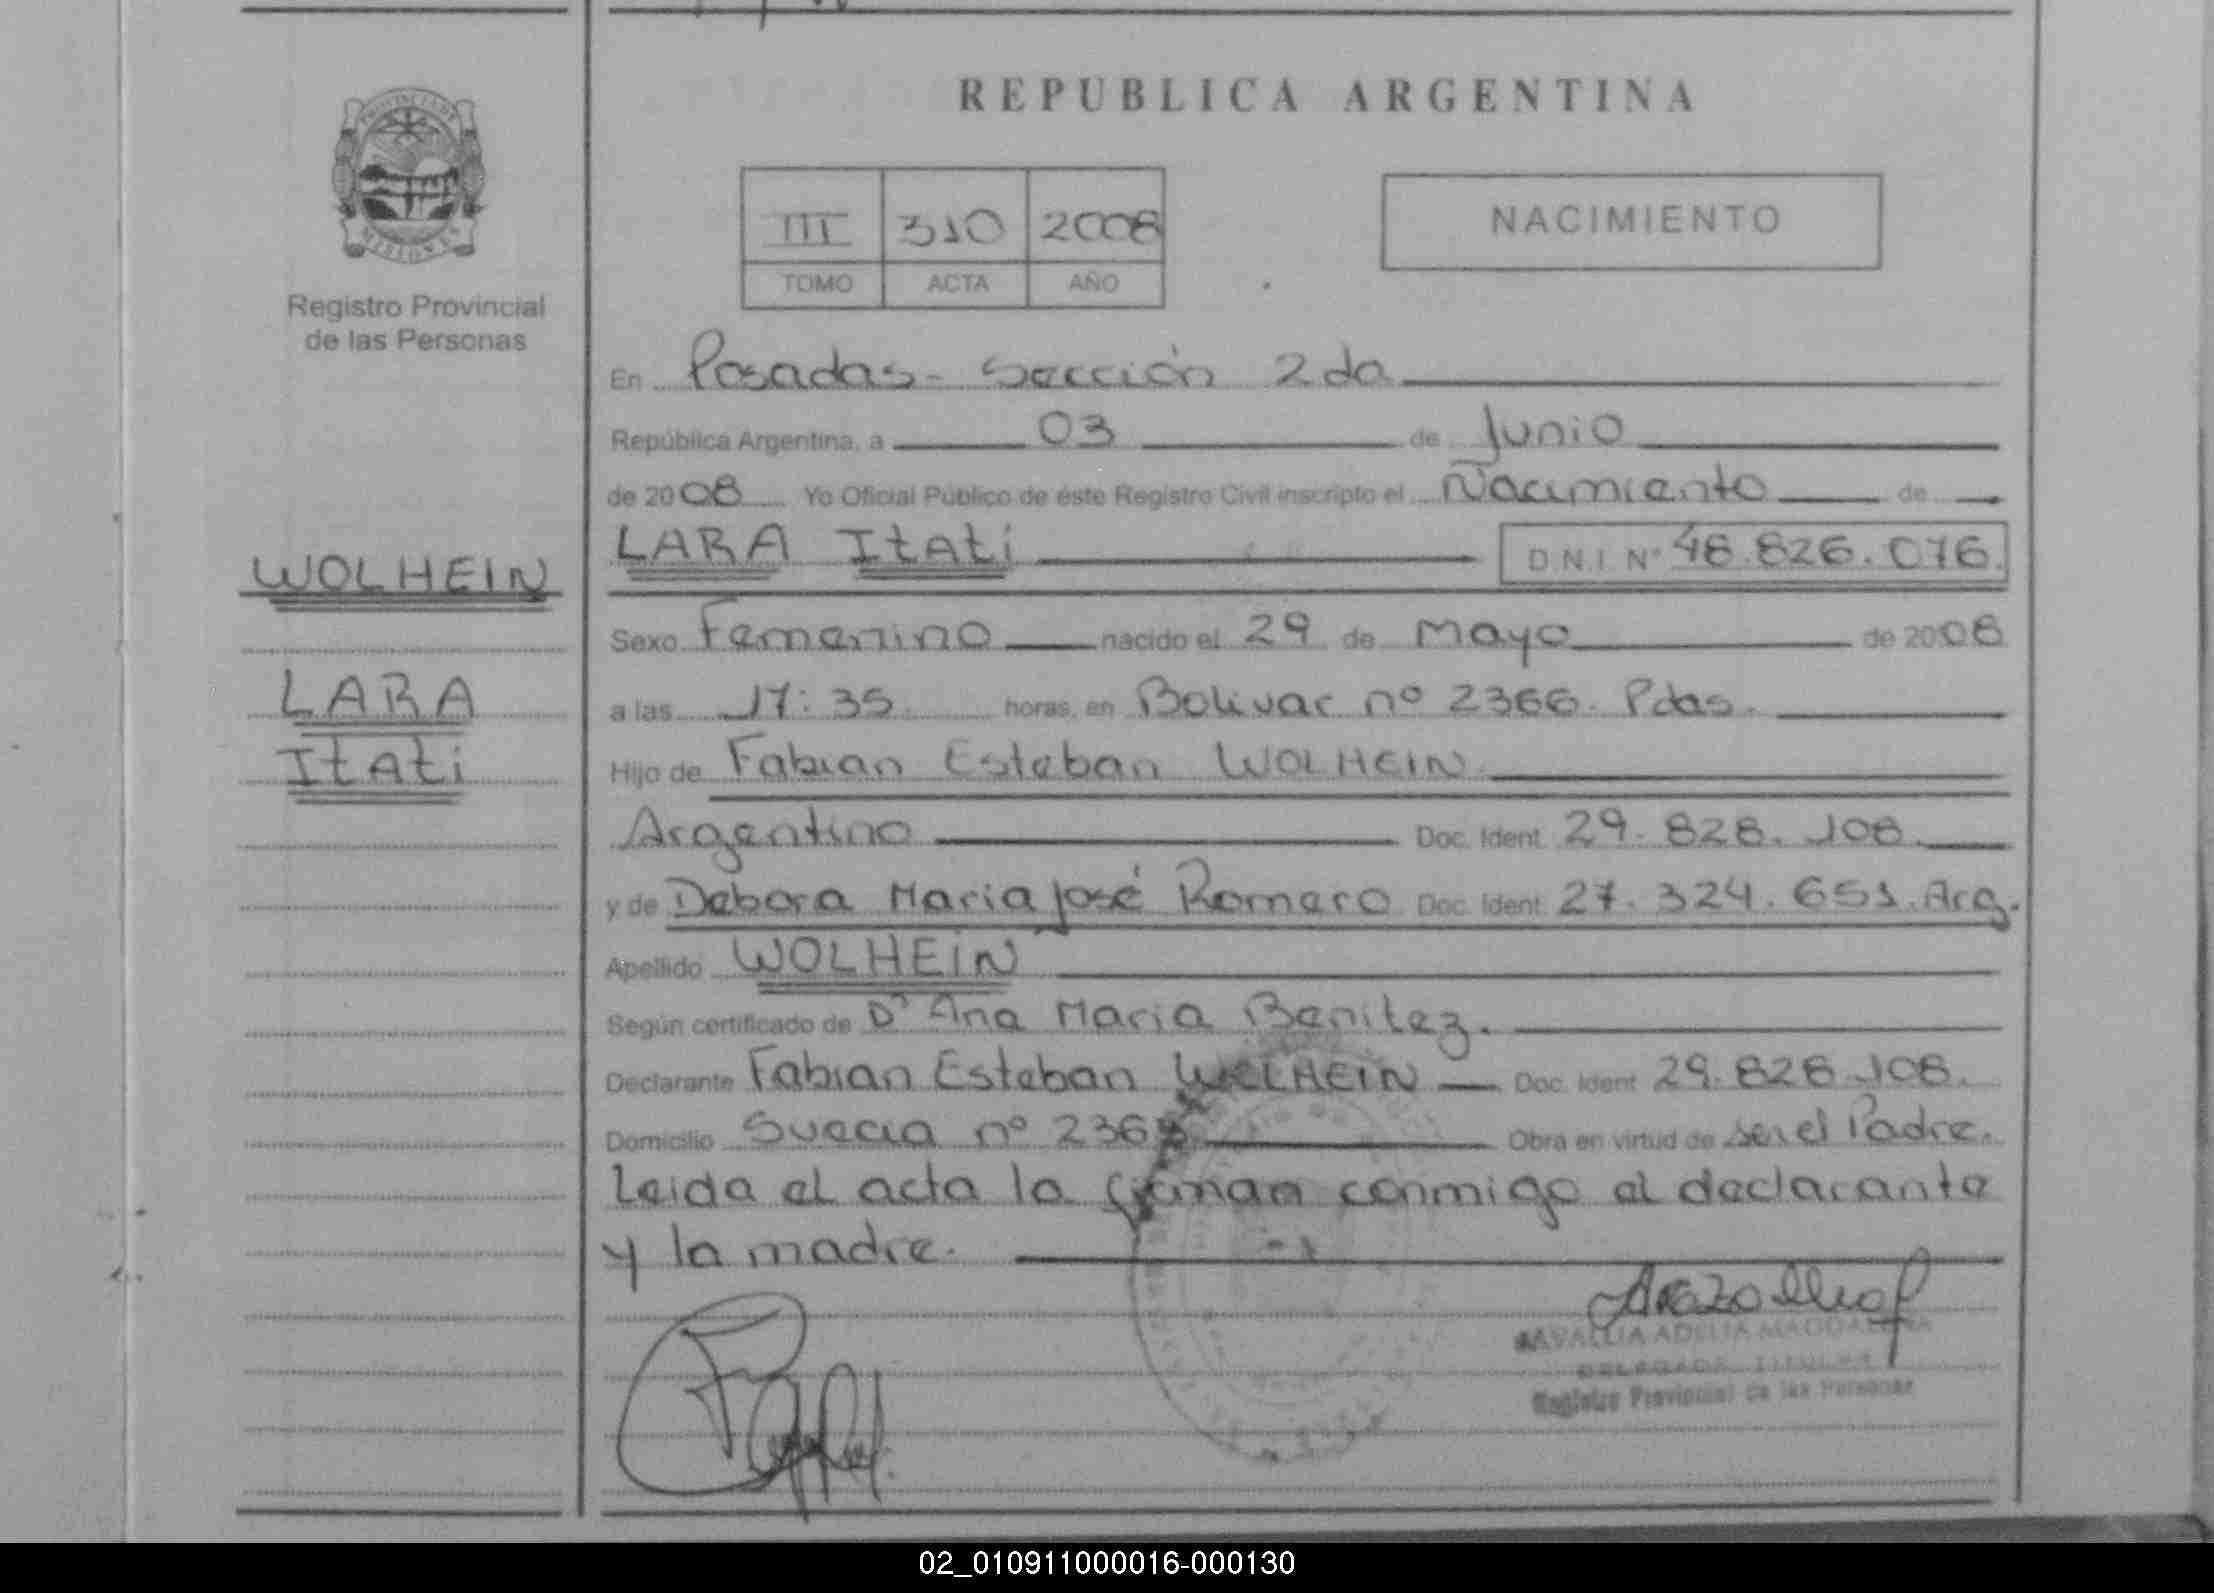 REPUBLICA ARGENTINA
PROVINCIA DE
MISIONES
Registro Provincial
de las Personas
III 310 2008
TOMO ACTA AÑO
NACIMIENTO
En Posadas - Sección 2da
República Argentina, a 03 de Junio
de 2008 Yo Oficial Público de éste Registro Civil inscripto el Nacimiento de
LARA Itatí D.N.I. Nº 48.826.076
WOLHEIN
LARA
Itatí
Sexo Femenino nacido el 29 de Mayo de 2008
a las 17:35 horas, en Bolivar nº 2366. Pdas.
Hijo de Fabian Esteban WOLHEIN
Argentino Doc. Ident. 29.828.108.
y de Debora Maria José Romero Doc. Ident. 27.324.651. Arg.
Apellido WOLHEIN
Según certificado de Dª Ana Maria Benitez.
Declarante Fabian Esteban WOLHEIN Doc. Ident. 29.828.108.
Domicilio Suecia nº 236 Obra en virtud de ser el Padre.
Leida el acta la firman conmigo el declarante
y la madre.
ADELIA MAGDALENA
DELEGADA TITULAR
Registro Provincial de las Personas
02_010911000016-000130